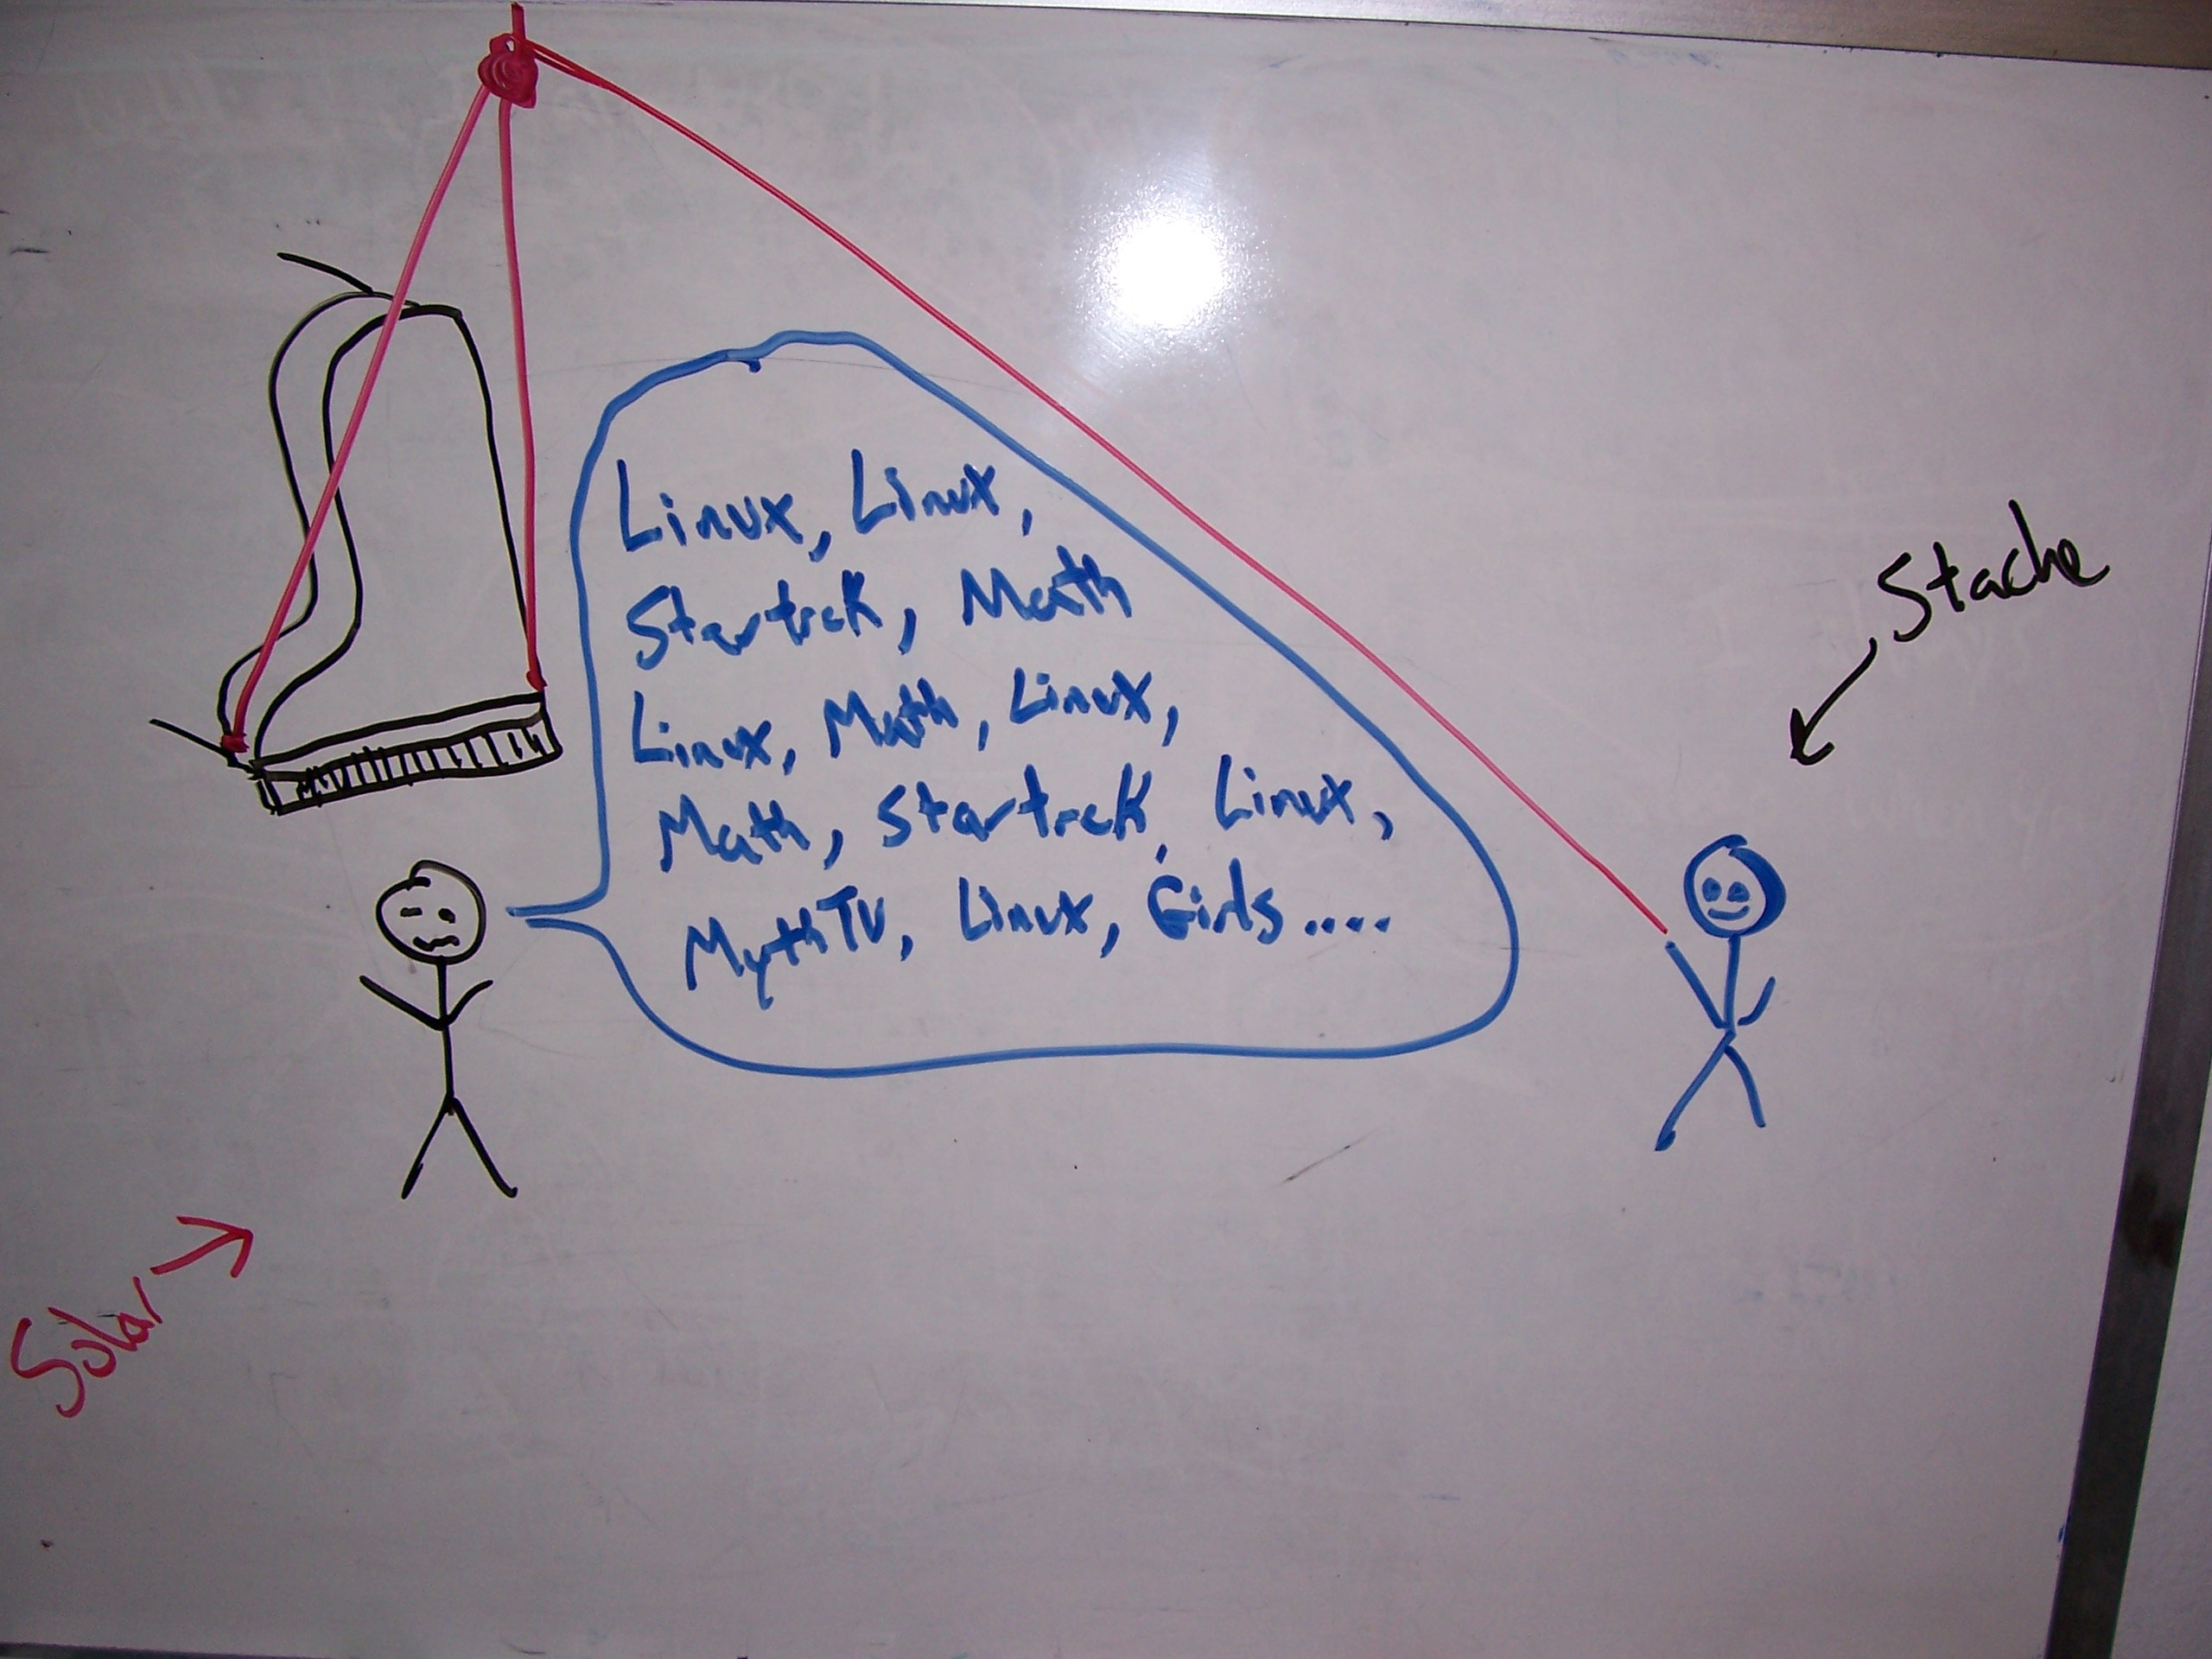 Linux, Linux,
Startrek, Math
Linux, Math, Linux,
Math, Startrek, Linux,
MythTV, Linux, Girls....
Stache
Solar